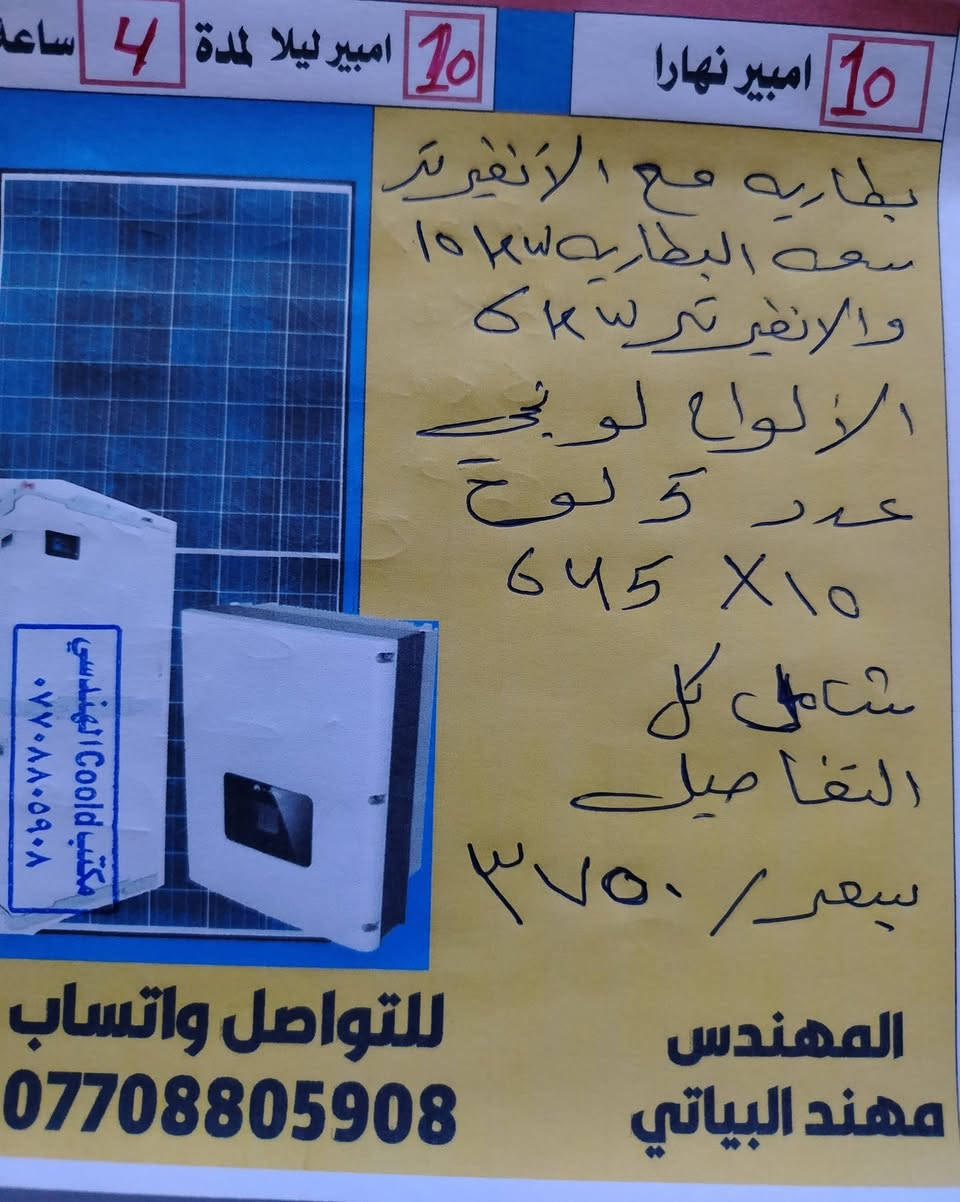 10 امبير نهارا
10 امبير ليلا لمدة 4 ساعة
بطاريه مع الأنفيرتر
سعه البطاريه 10kw
والانفيرتر 6kw
الألواح لونجي
عدد 5 لوح
645 X 10
شامل كل
التفاصيل
سعر / ٣٧٥٠
مكتب Coold الهندسي
٠٧٧٠٨٨٠٥٩٠٨
المهندس
مهند البياتي
للتواصل واتساب
07708805908